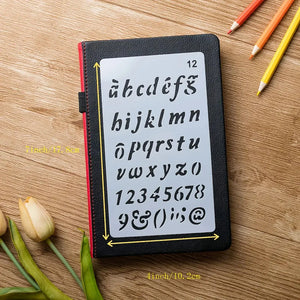 12
àbcdéfg̃
hijklmn
õpqrstu
vwxyzo
12345678
9&();@
7inch/17.8cm
4inch/10.2cm